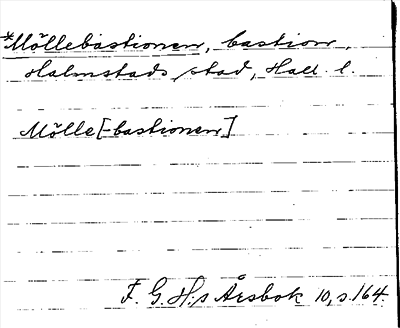 *Möllebastionen, bastion,
Halmstads stad, Hall. l.
Mölle[-bastionen]
F. G. H:s Årsbok 10, s. 164.